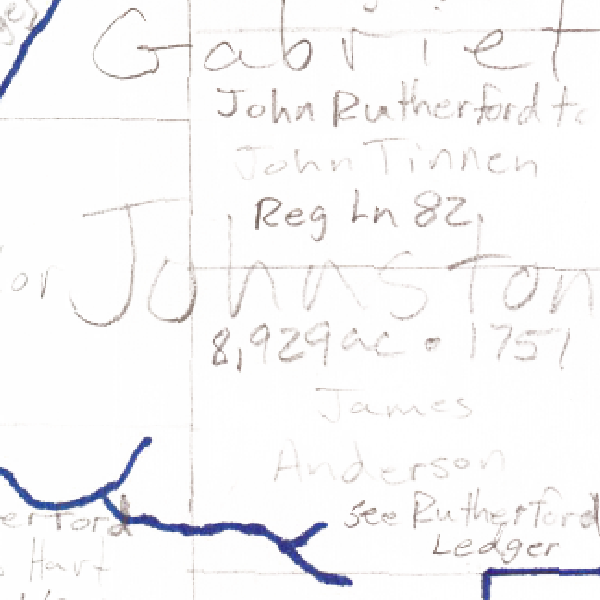 Gabriel
John Rutherford to
John Tinnen
Reg Ln 82
Johnston
8,929ac • 1751
James
Anderson
See Rutherford
Ledger
Hart